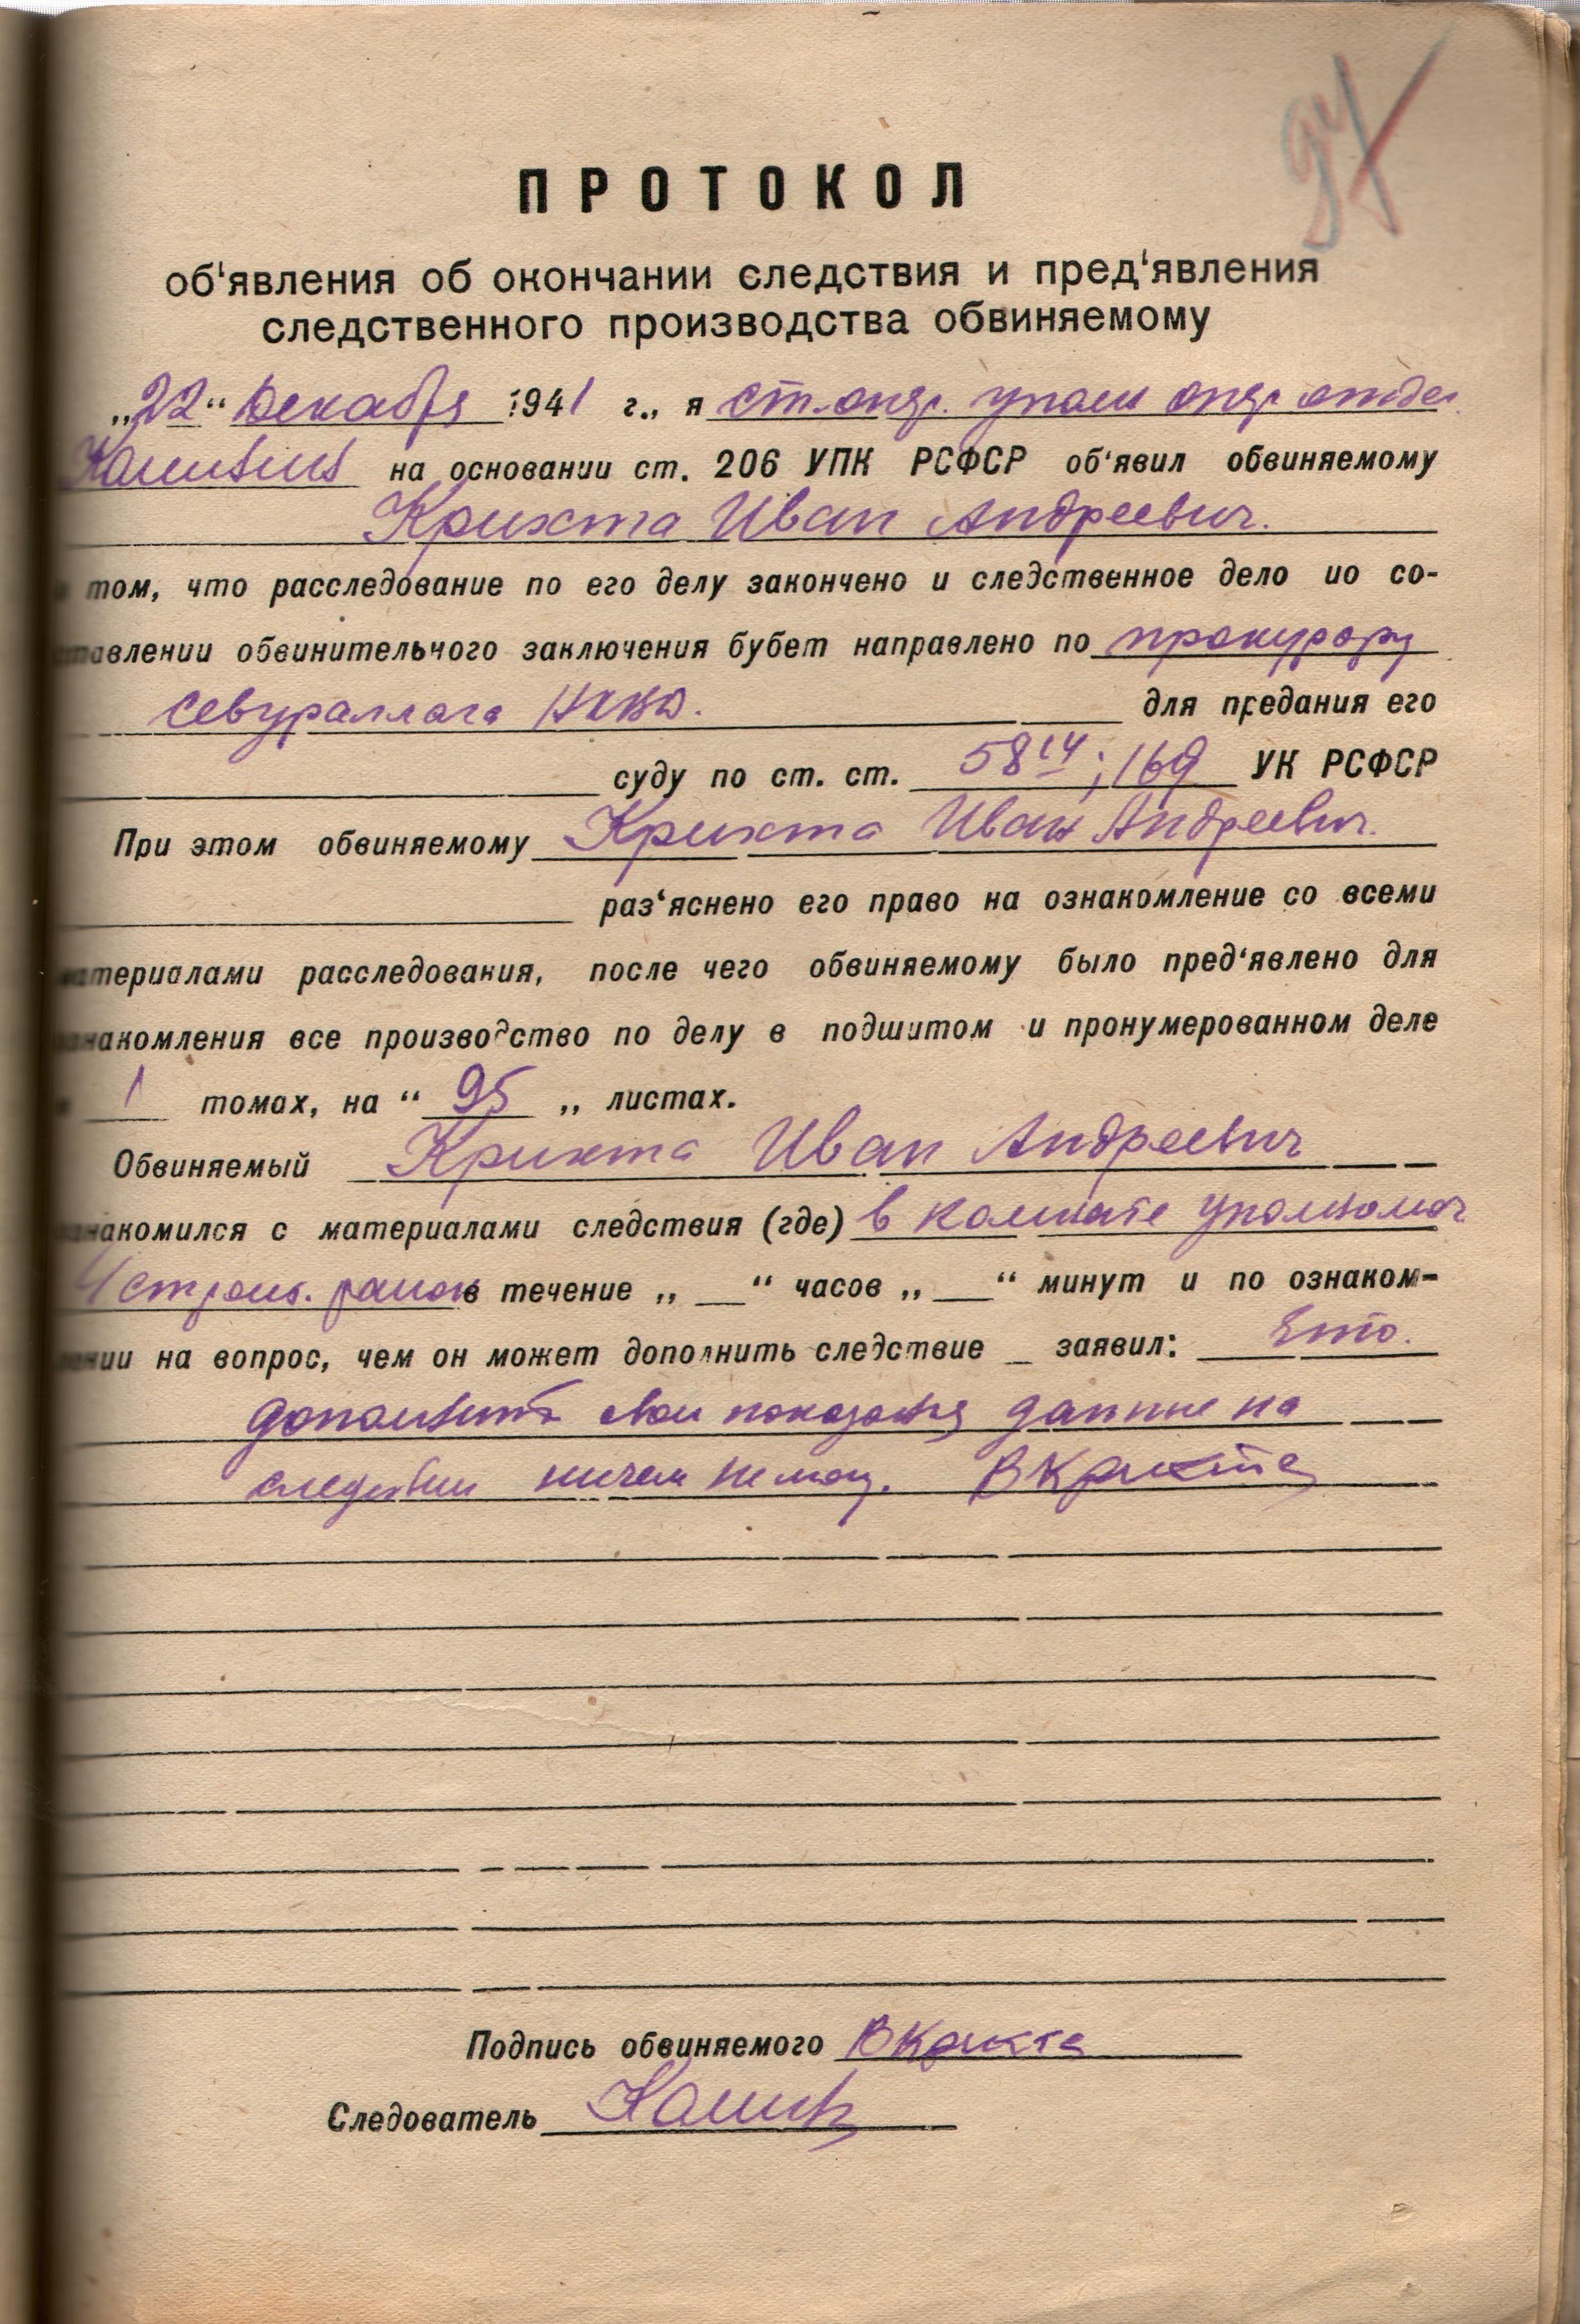 ПРОТОКОЛ
об‘явления об окончании следствия и пред‘явления
следственного производства обвиняемому
„22“ Декабря 1941 г., я ст. опер. уполн опер отдел
на основании ст. 206 УПК РСФСР об‘явил обвиняемому
Крихта Иван Андреевич.
том, что расследование по его делу закончено и следственное дело ио со-
тавлении обвинительного заключения бубет направлено по прокурору
Севураллага НКВД.
для предания его
суду по ст. ст. 58 14; 169 УК РСФСР
При этом обвиняемому Крихта Иван Андреевич.
раз‘яснено его право на ознакомление со всеми
атериалами расследования, после чего обвиняемому было пред‘явлено для
знакомления все производство по делу в подшитом и пронумерованном деле
1 томах, на “ 95 „ листах.
Обвиняемый Крихта Иван Андреевич
знакомился с материалами следствия (где) в комнате уполномоч
строит. района в течение „ __ “ часов „ __ “ минут и по ознаком-
лении на вопрос, чем он может дополнить следствие _ заявил: Что.
дополнить свои показания данные на
следствии ничем не могу. ВКрихта
Подпись обвиняемого ВКрихта
Следователь